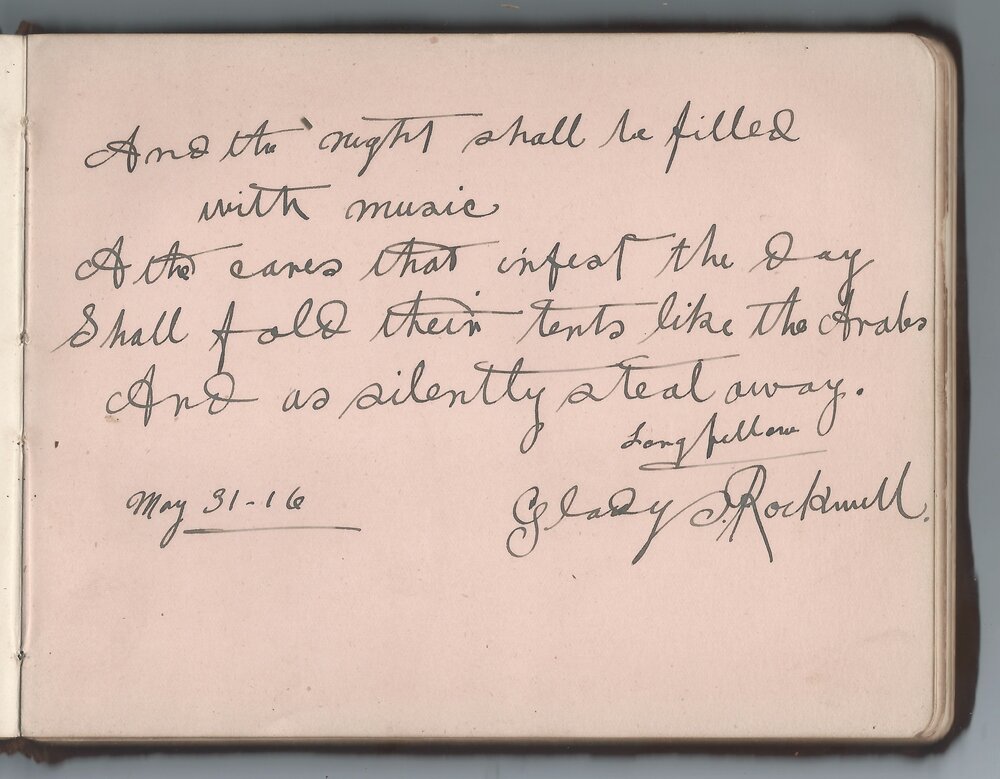 And the night shall be filled
with music
A the cares that infest the day
Shall fold their tents like the Arabs
And as silently steal away.
Longfellow
May 31-16
Gladys Rockwell.